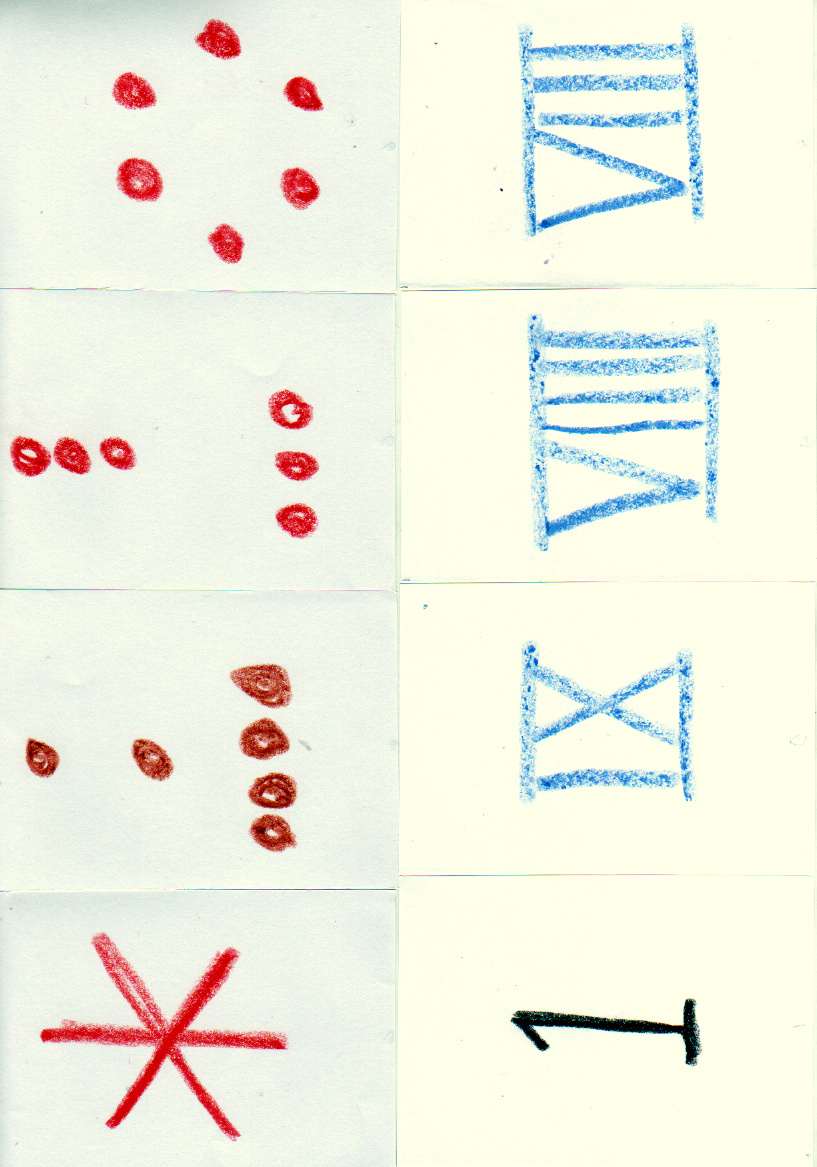 VIII
VIIII
IX
1